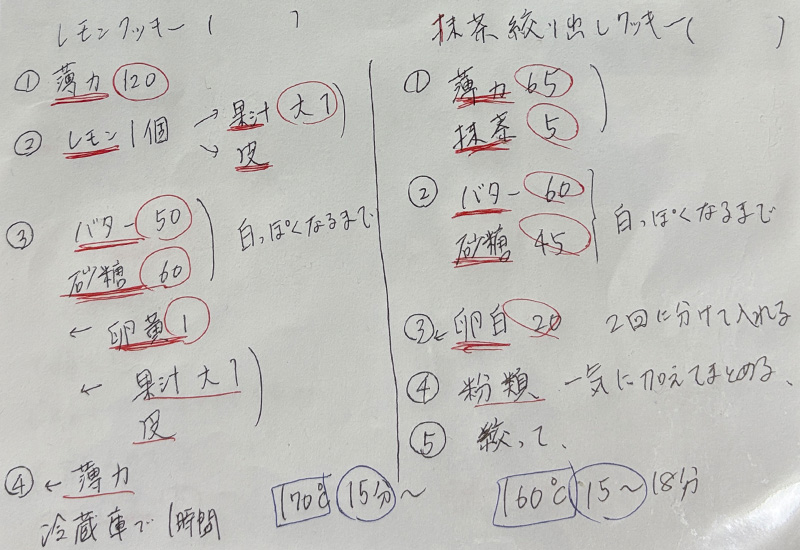 レモンクッキー (　　)
① 薄力 120
② レモン 1個 → 果汁 大1
↘ 皮
③ バター 50
砂糖 60
白っぽくなるまで
← 卵黄 1
← 果汁 大1
皮
④ ← 薄力
冷蔵庫で 1時間
170℃ 15分〜
抹茶絞り出しクッキー(　　)
① 薄力 65
抹茶 5
② バター 60
砂糖 45
白っぽくなるまで
③ ← 卵白 20 2回に分けて入れる
④ 粉類 一気に加えてまとめる、
⑤ 絞って、
160℃ 15〜18分